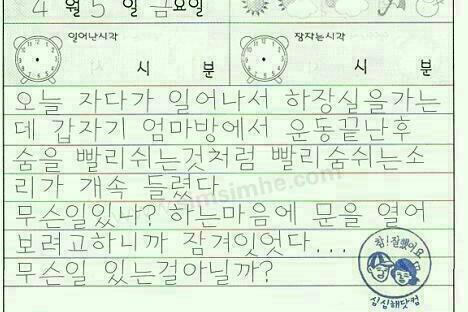 4 월 5 일 금요일
일어난시각
잠자는시각
시 분
시 분
오늘 자다가 일어나서 하장실을가는
데 갑자기 엄마방에서 운동끝난후
숨을 빨리쉬는것처럼 빨리숨쉬는소
리가 개속 들렸다
무슨일있나? 하는마음에 문을 열어
보려고하니까 잠겨잇엇다...
무슨일 있는걸아닐까?
참! 잘했어요
심심해닷컴
simsimhe.com